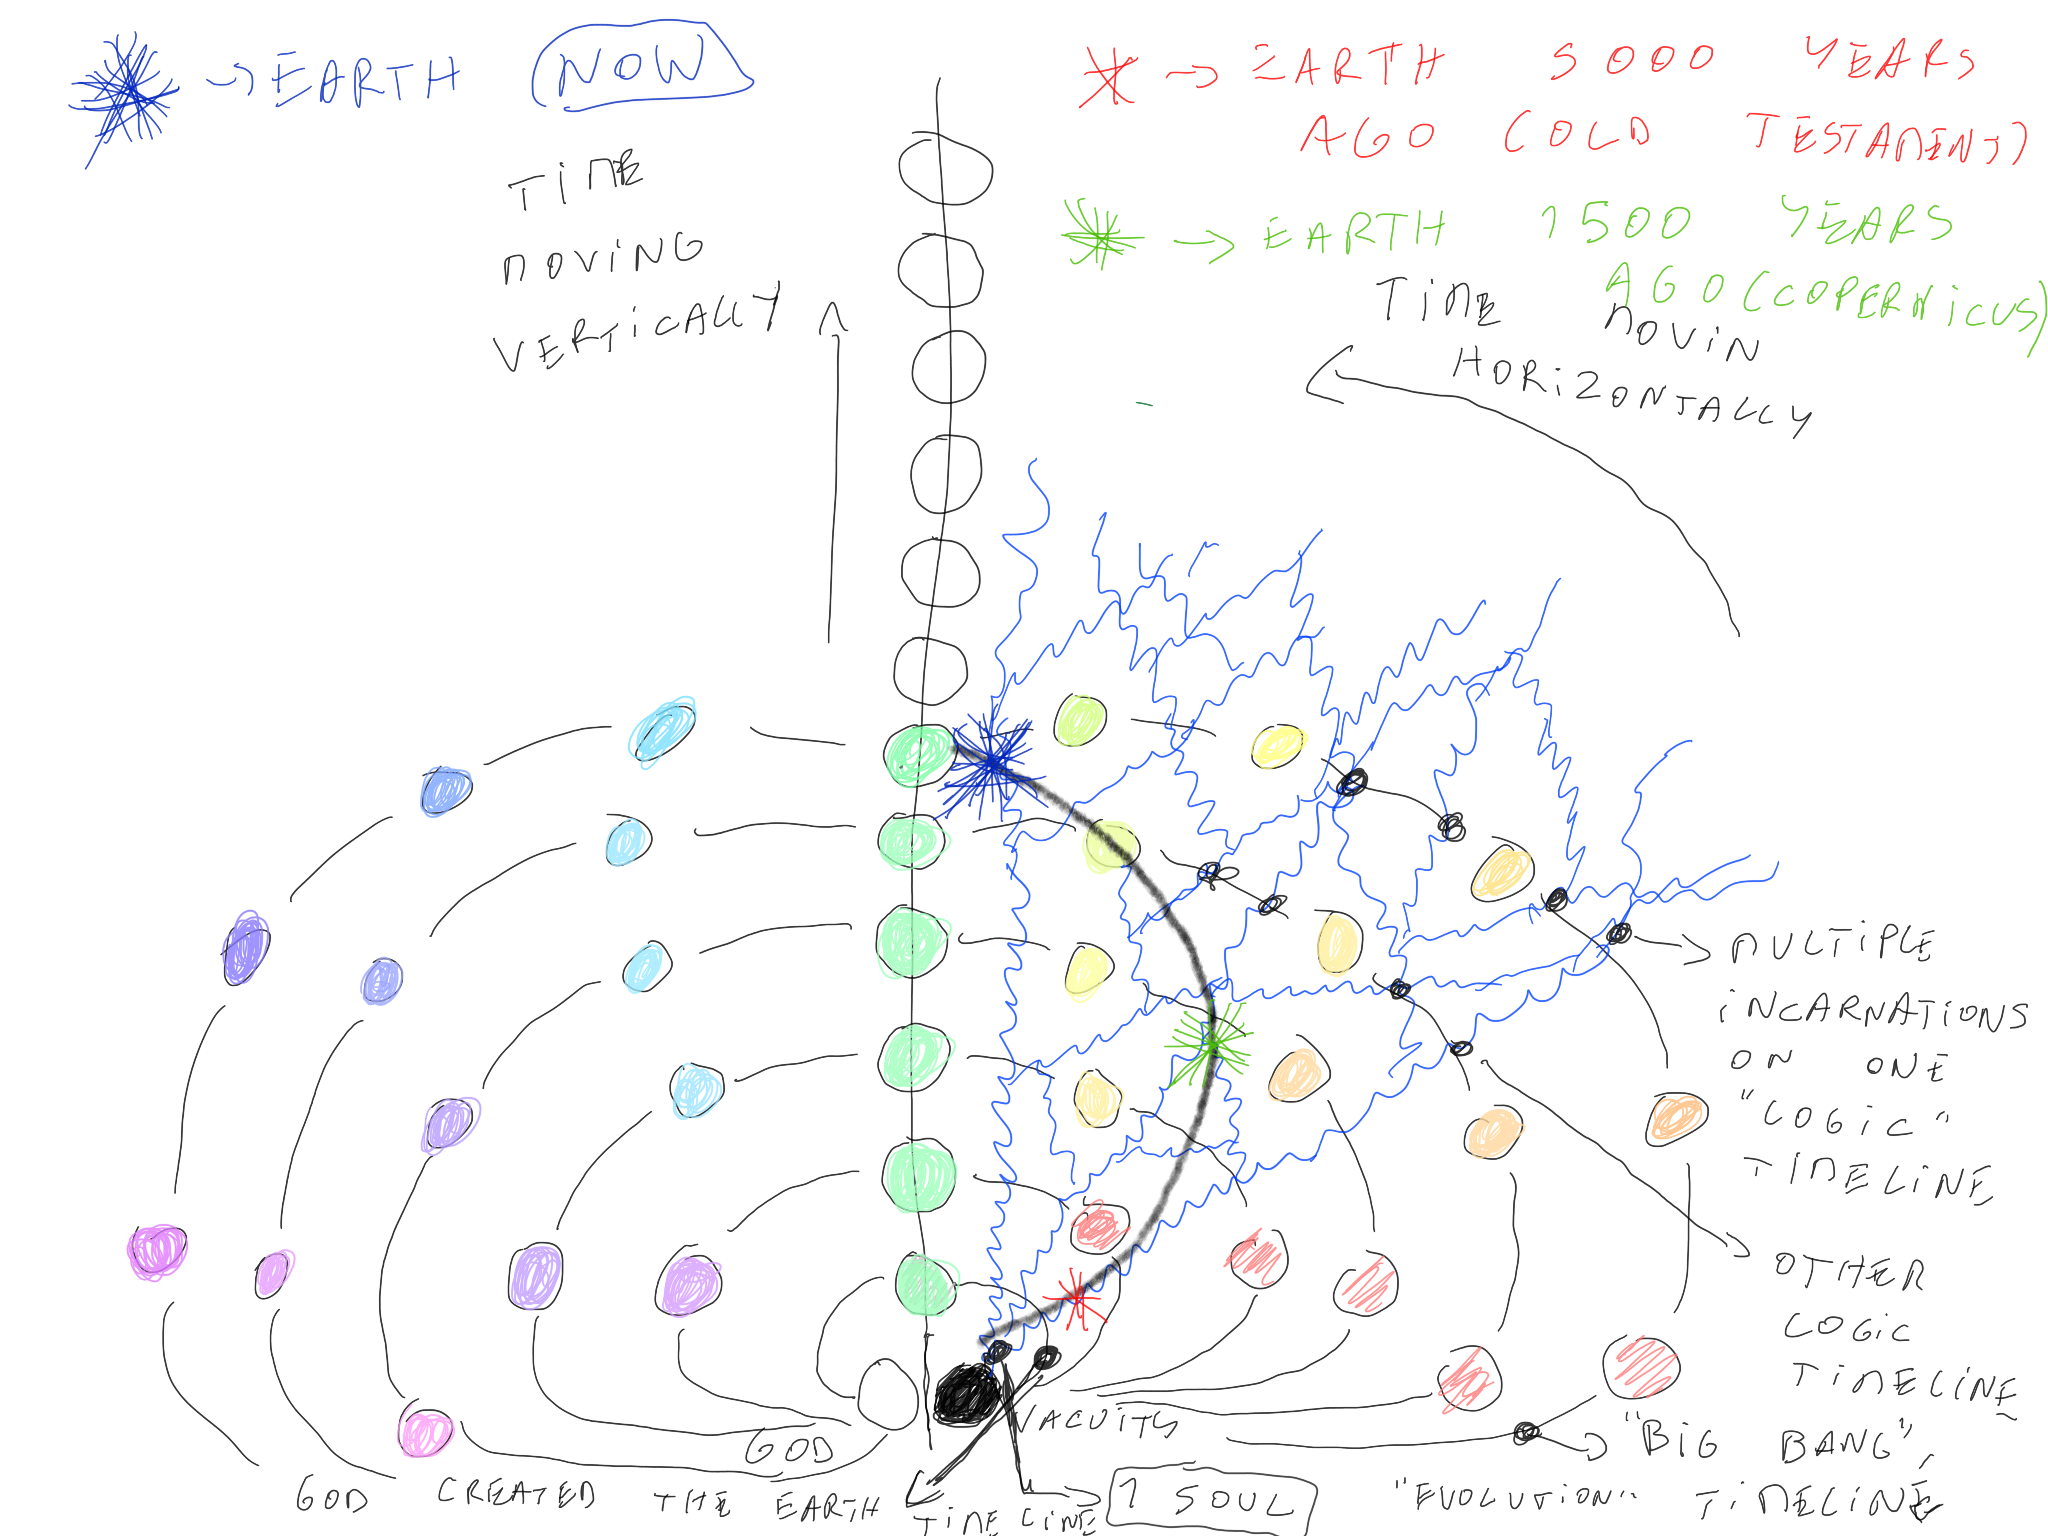 EARTH NOW
TIME
MOVING
VERTICALLY
EARTH 5000 YEARS
AGO (OLD TESTAMENT)
EARTH 1500 YEARS
AGO (COPERNICUS)
TIME MOVIN
HORIZONTALLY
MULTIPLE
INCARNATIONS
ON ONE
"LOGIC"
TIMELINE
OTHER
LOGIC
TIMELINE
"BIG BANG",
"EVOLUTION" TIMELINE
VACUITY
GOD
GOD CREATED THE EARTH TIME LINE
1 SOUL